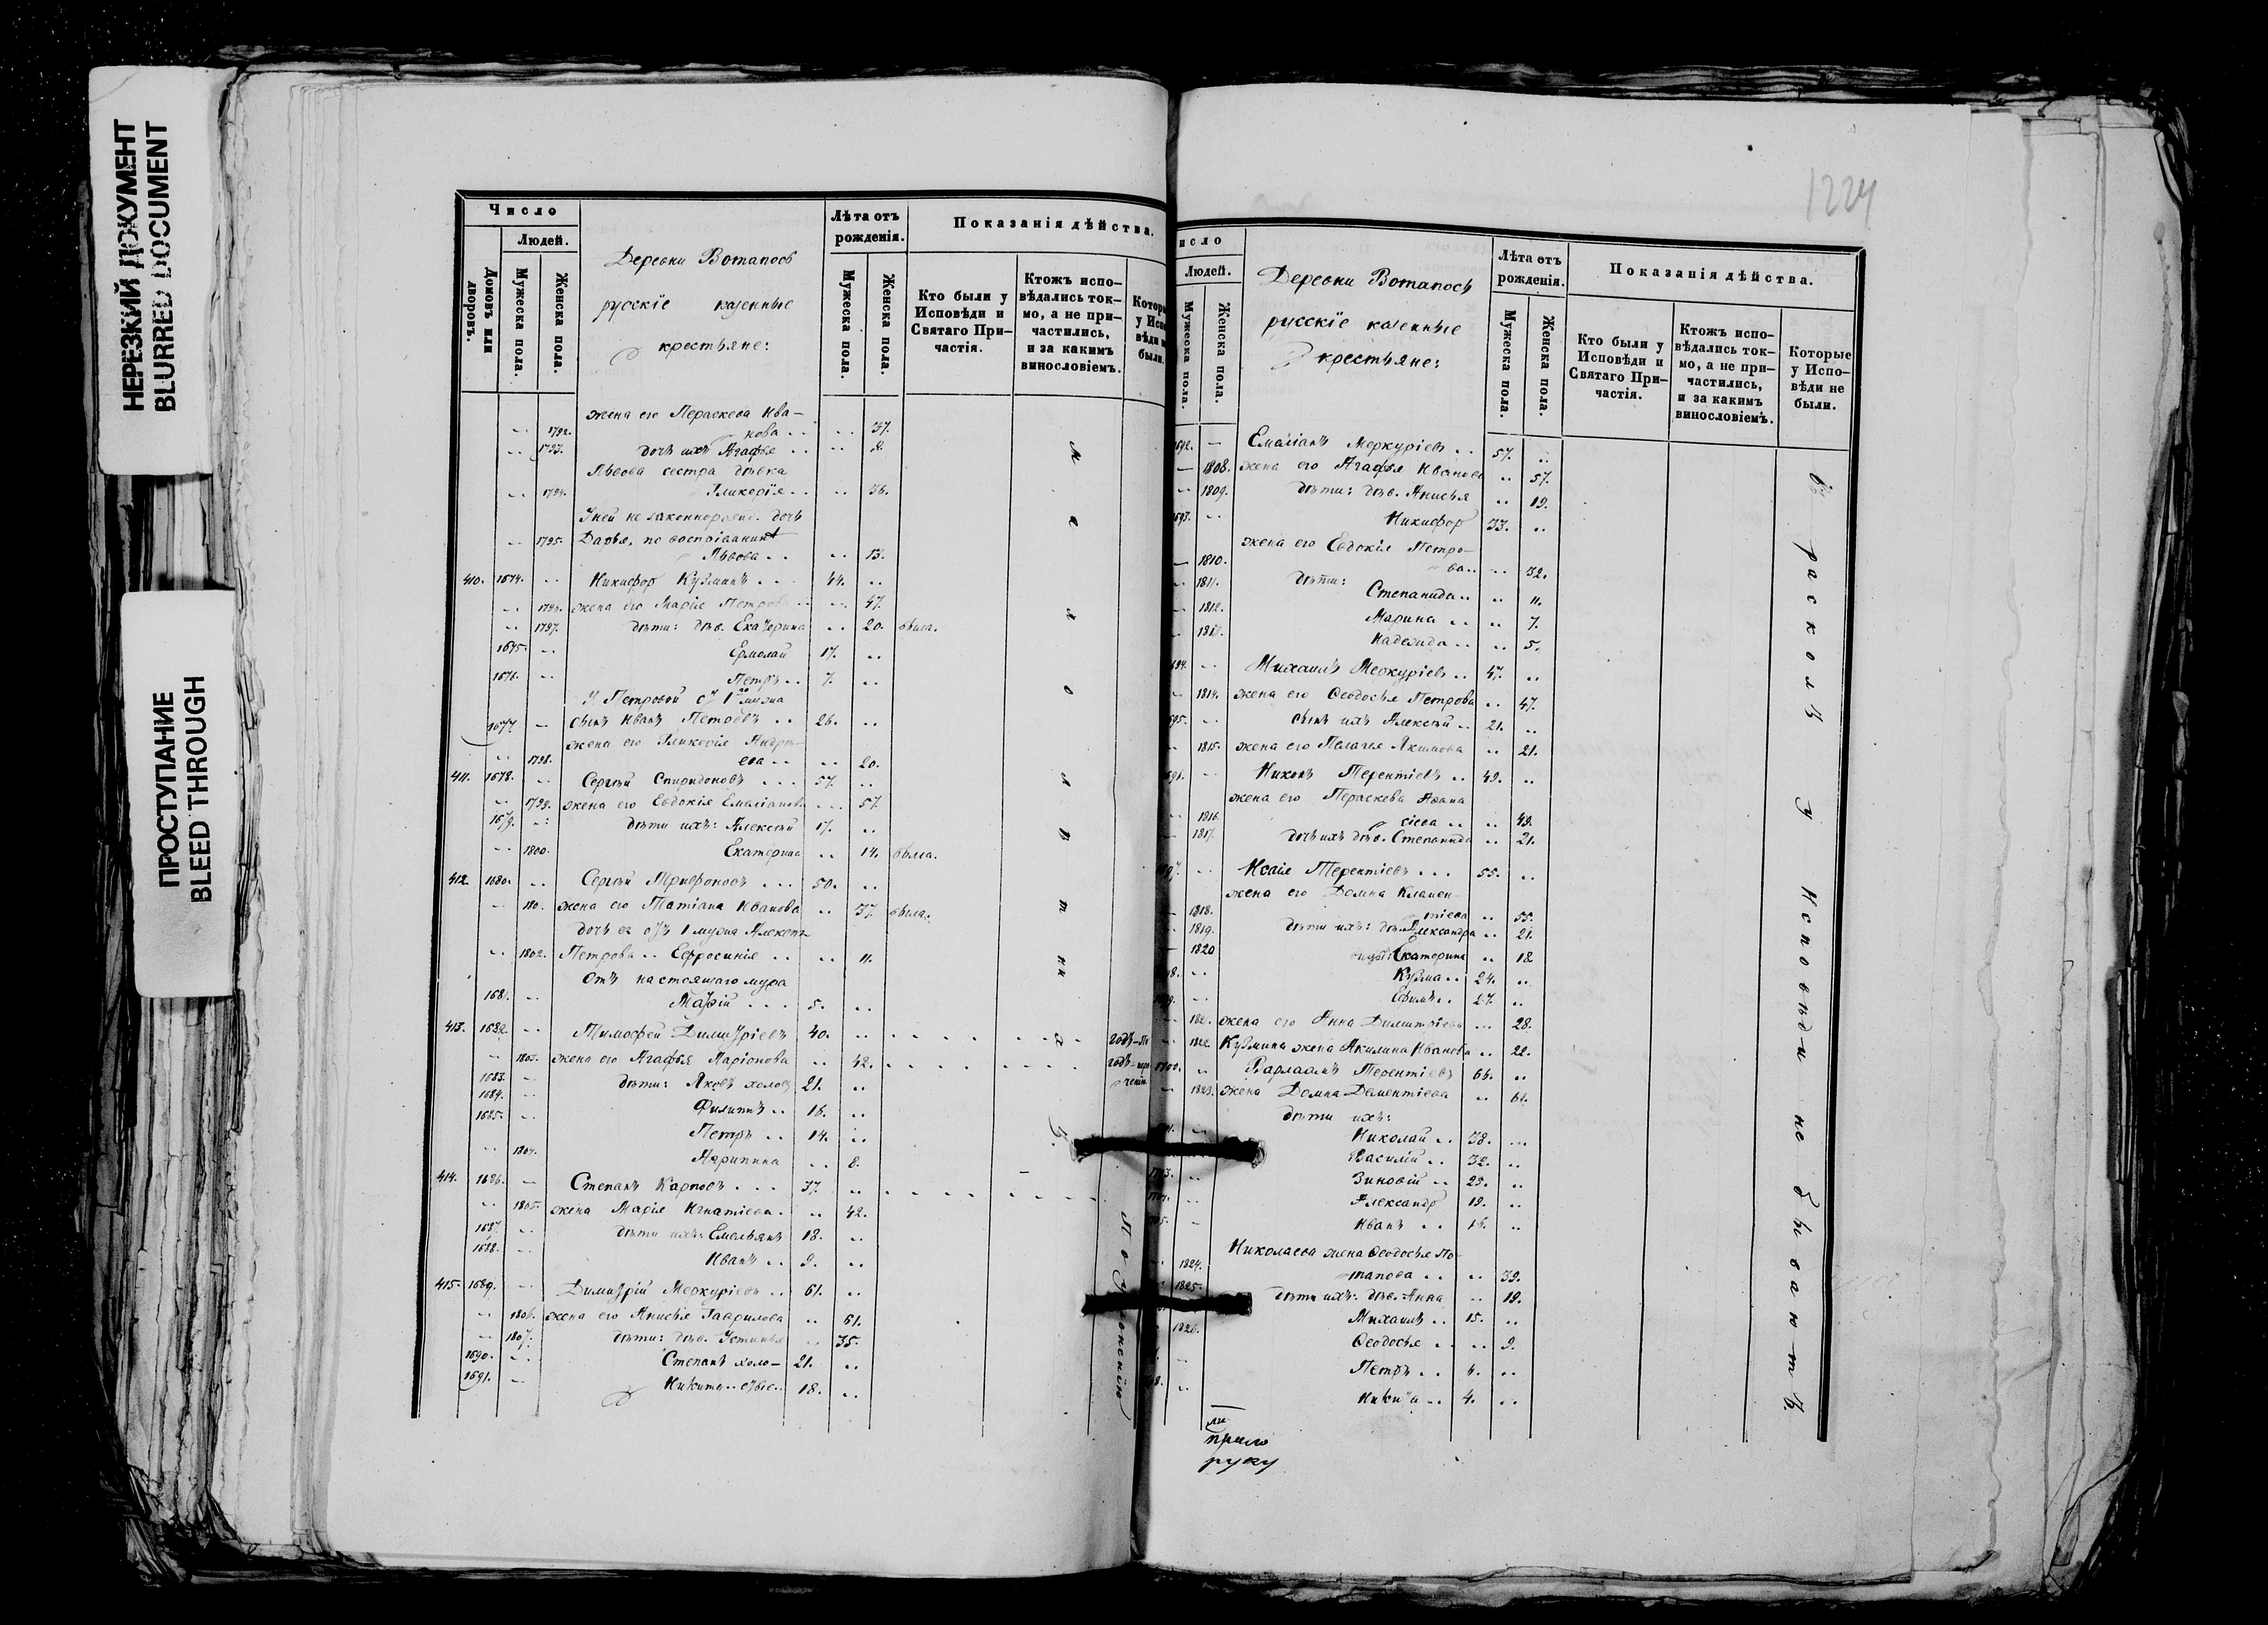 НЕРЕЗКИЙ ДОКУМЕНТ
BLURRED DOCUMENT
ПРОСТУПАНИЕ
BLEED THROUGH
Число
Людей.
Домовъ или дворовъ.
Мужеска пола.
Женска пола.
Деревни Вотапось
русскіе казенные
крестьяне:
Лѣта отъ рожденія.
Мужеска пола.
Женска пола.
Показанія дѣйства.
Кто были у Исповѣди и Святаго Причастія.
Ктожъ исповѣдались токмо, а не причастились, и за какимъ винословіемъ.
жена его Пераскева Ива-
1792. нова .. .. 37.
1793. дочь ихъ Агафья .. .. 8.
Львова сестра дѣвка
1794. Гликерія .. .. 36.
У ней незаконнорожд. дочь
1795. Дарья, по воспріемнику
Львова .. .. 13.
410. 1674. .. Никифор Кузминъ .. 44. ..
1796. жена его Марія Петрова .. 47.
1797. дѣти: дѣв. Екатерина .. 20. была.
1675. .. Ермолай 17. ..
1676. .. Петръ .. 7. ..
У Петровой съ 1 мужа
1677. — сынъ Иванъ Петровъ .. 26. ..
жена его Гликерія Андре-
1798. ева .. .. 20.
411. 1678. .. Сергѣй Спиридоновъ ... 57. ..
1799. жена его Евдокія Емеліанова ... 57.
1679. .. дѣти ихъ: Алексѣй 17. ..
1800. Екатерина .. 14. была.
412. 1680. .. Сергѣй Трифоновъ ... 50. ..
180. жена его Татіана Иванова .. 37. была.
дочь ея отъ 1 мужа Алексѣя
1802. Петрова .. Евфросинія .. .. 11.
Отъ настоящаго мужа
1681. .. 5. ..
413. 1682. .. Тимофей Димитріевъ 40. ..
1803. жена его Агафья Ларіонова .. 42.
1683. .. дѣти: Яковъ холос 21. ..
1684. .. Филиппъ .. 16. ..
1685. .. Петръ .. 14. ..
1804. .. 8.
414. 1686. — Степанъ Карповъ ... 37. ..
1805. жена Марія Игнатіева .. 42.
1687. .. дѣти ихъ: Емельянъ 18. ..
1688. .. Иванъ .. 9. ..
415. 1689. .. Димитрій Меркуріевъ .. 61. ..
1806. жена его Анисья Гаврилова .. 61.
1807. дѣти: дѣв. Устинья .. 35.
1690. .. Степанъ холо— 21. ..
1691. .. Никита .. 18. ..
По уклоненію
1224
Людей.
Мужеска пола.
Женска пола.
Деревни Вотапось
русскіе казенные
крестьяне:
Лѣта отъ рожденія.
Мужеска пола.
Женска пола.
Показанія дѣйства.
Кто были у Исповѣди и Святаго Причастія.
Ктожъ исповѣдались токмо, а не причастились, и за какимъ винословіемъ.
Которые у Исповѣди не были.
— Емеліанъ Меркуріевъ .. 57. ..
1808. жена его Агафья Иванова .. 57.
1809. дѣти: дѣв. Анисья .. 19.
Никифор 33. ..
жена его Евдокія Петро-
1810. ва .. .. 32.
1811. дѣти: Степанида .. .. 11.
1812. Марина .. .. 7.
1813. Надежда .. .. 5.
Михаилъ Меркуріевъ .. 47. ..
1814. жена его Ѳеодосья Петрова .. 47.
сынъ ихъ Алексѣй .. 21. ..
1815. жена его Пелагея Якимова .. 21.
Никонъ Терентіевъ .. 49. ..
жена его Пераскева Афана
1816. сіева .. .. 49.
1817. дочь ихъ дѣв. Степанида .. 21.
Исаія Терентіевъ ... 55. ..
жена его Домна Климен-
1818. тіева .. 55.
1819. дѣти ихъ: дѣв. Александра .. 21.
1820 Екатерина .. 18
Кузма .. 24. ..
Ефимъ .. 27. ..
жена его Анна Димитріева ... 28.
1822. Кузмина жена Акилина Иванова .. 22.
1700. .. Варлаамъ Терентіевъ 66. ..
1823. жена Домна Дементіева .. 61.
дѣти ихъ:
Николай .. 38. ...
Василій .. 32. ..
Зиновій .. 25. ..
Александр 19. ..
Иванъ .. 16. ..
Николаева жена Ѳеодосья По-
1824. тапова .. .. 39.
1825. дѣти ихъ: дѣв. Анна .. 19.
Михаилъ .. 15. ..
1826. Ѳеодосья .. .. 9.
Петръ .. 6. ..
Никита .. 4. ..
въ расколѣ у Исповѣди не бываютъ.
руку